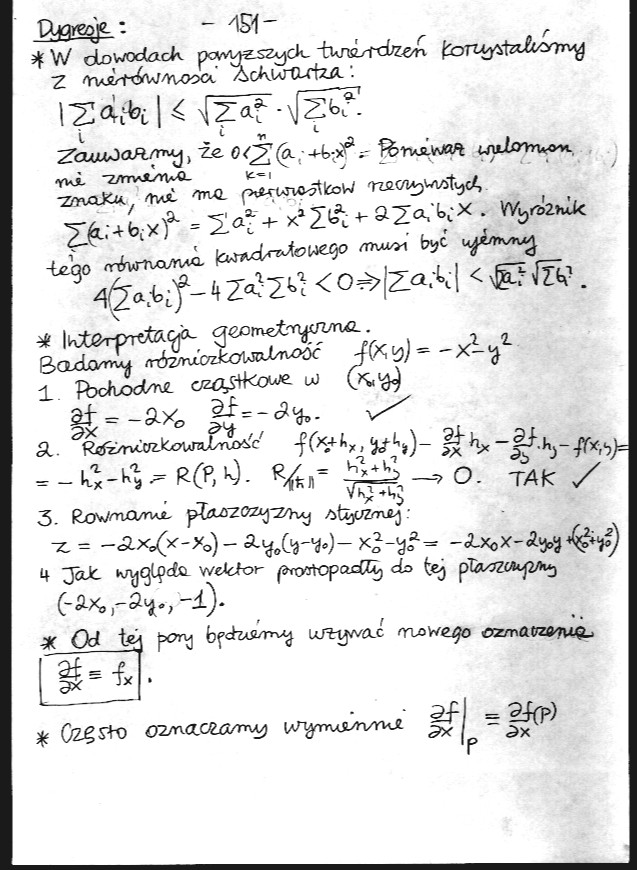 Dygresje: - 151 -
* W dowodach powyższych twierdzeń korzystaliśmy
z nierówności Schwartza:
|∑_i a_i b_i| ≤ √(∑_i a_i²) · √(∑_i b_i²).
Zauważmy, że 0 < ∑_{k=1}^{n} (a_i + b_i x)² = Ponieważ wielomian
nie zmienia
znaku, nie ma pierwiastków rzeczywistych.
∑(a_i + b_i x)² = ∑a_i² + x² ∑b_i² + 2∑a_i b_i x. Wyróżnik
tego równania kwadratowego musi być ujemny
4(∑a_i b_i)² − 4∑a_i² ∑b_i² < 0 ⇒ |∑a_i b_i| < √(a_i²) √(∑b_i²).
* Interpretacja geometryczna.
Badamy różniczkowalność f(x,y) = −x² − y²
1. Pochodne cząstkowe w (x₀,y₀)
∂f/∂x = −2x₀ ∂f/∂y = −2y₀. ✓
2. Różniczkowalność f(x₀+h_x, y₀+h_y) − ∂f/∂x h_x − ∂f/∂y · h_y − f(x,y) =
= −h_x² − h_y² = R(P,h). R/‖h‖ = (h_x² + h_y²)/√(h_x² + h_y²) → 0. TAK ✓
3. Równanie płaszczyzny stycznej:
z = −2x₀(x−x₀) − 2y₀(y−y₀) − x₀² − y₀² = −2x₀x − 2y₀y + (x₀² + y₀²)
4 Jak wygląda wektor prostopadły do tej płaszczyzny
(−2x₀, −2y₀, −1).
* Od tej pory będziemy używać nowego oznaczenia
∂f/∂x ≡ f_x.
* Często oznaczamy wymiennie ∂f/∂x|_P ≡ ∂f/∂x(P)